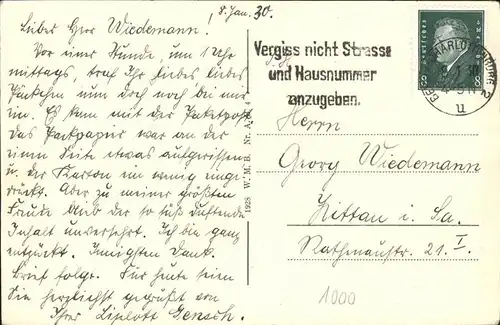 8. Jan. 30.
Lieber Herr Wiedemann.
Vor einer Stunde, um 1 Uhr
mittags, traf Ihr liebes liebes
Päckchen nun doch noch bei mir
ein. Es kam mit der Paketpost.
Das Packpapier war an der
einen Seite etwas aufgerissen
u. der Karton ein wenig einge-
drückt. Aber zu meiner größten
Freude blieb der so süß duftende
Inhalt unversehrt. Ich bin ganz
entzückt. Innigsten Dank.
Brief folgt. Für heute seien
Sie herzlichst gegrüßt von
Ihrer Liselott Gensch.
1928 W. M. B. Nr. A
Vergiss nicht Strasse
und Hausnummer
anzugeben.
Deutsches Reich
8 8
CHARLOTTENBURG 2
30
u
Herrn
Georg Wiedemann
Zittau i. Sa.
Rathenaustr. 21. I.
1000